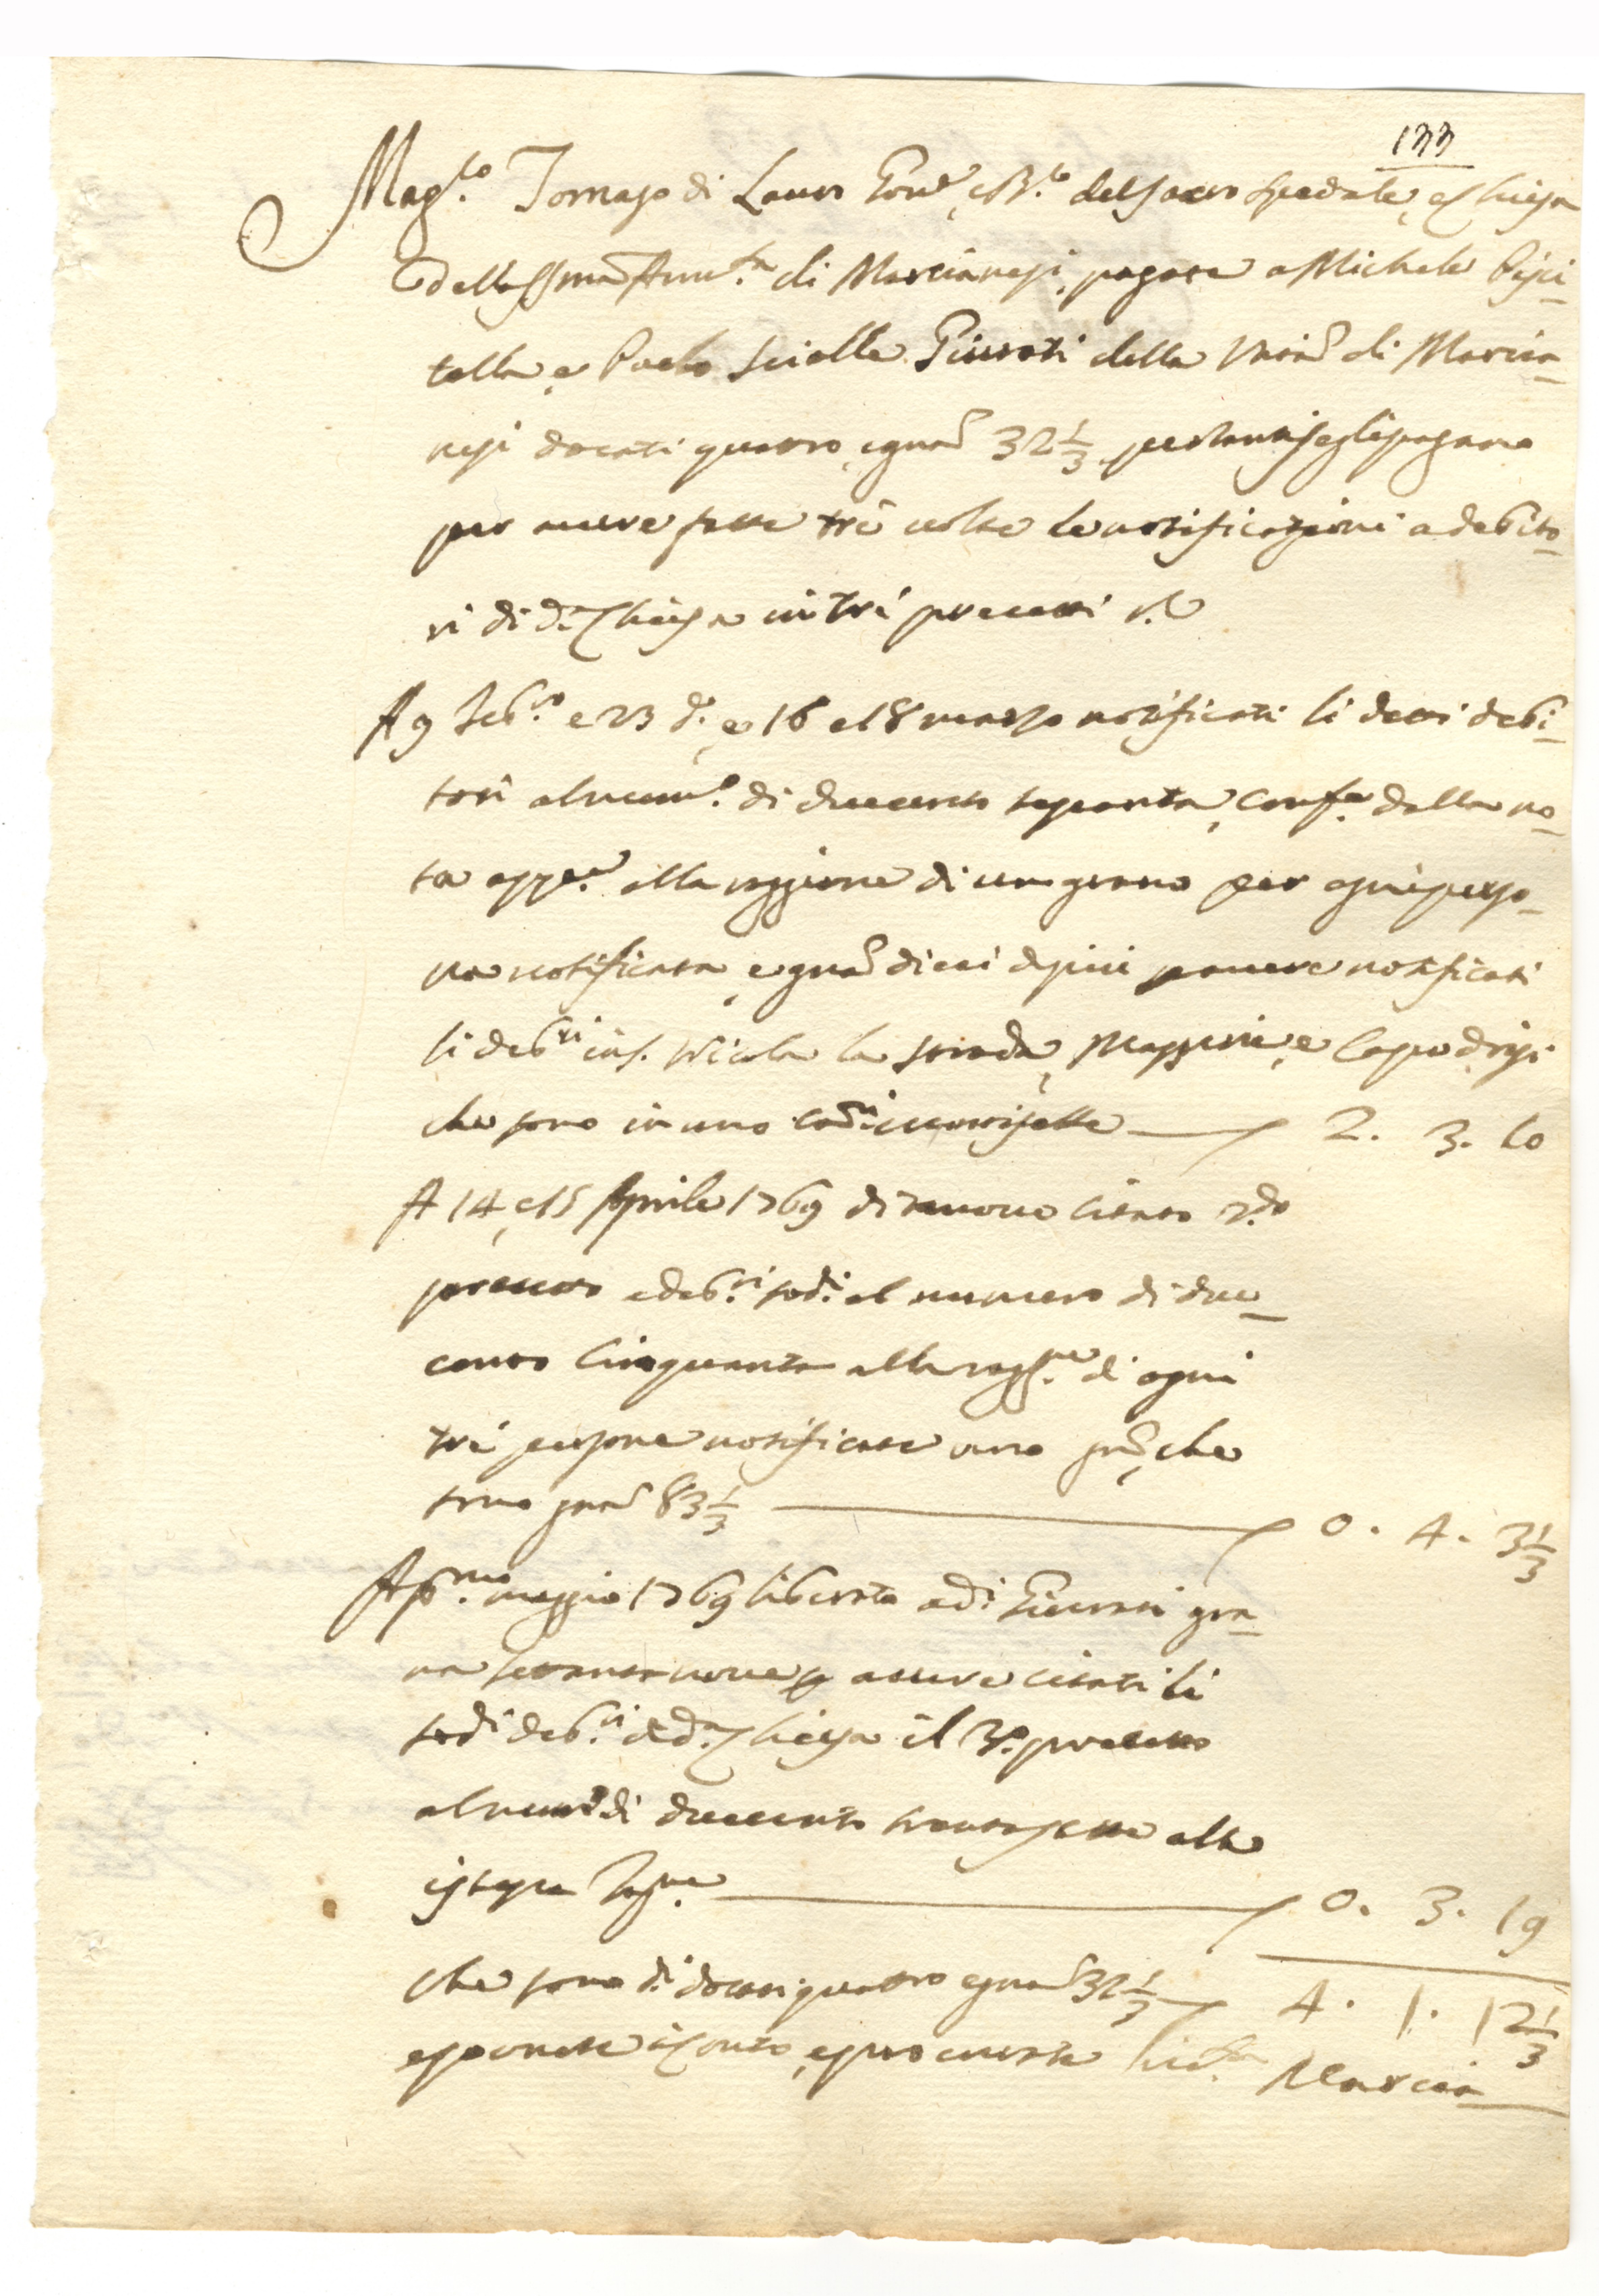 133
Mag.co Tomaso di Lauro Gov.e, e B.lo del sacro Spedale, e Chiesa
della SSma Ann.ta di Marcianesi, pagate a Michele Pisci-
tella, e Paolo Sciella Giurati della Università di Marcia-
nesi docati quattro, e gna 32 1/3 per tanti se gli pagano
per avere fatte trè volte le notificazioni a debito-
ri di d.a Chiesa in trè precetti V.e
A 9 Feb.ro e 23 d.o, e 16 e 18 marzo notificati li detti debi-
tori al num.o di duecento sessanta, conf.e dalla no-
ta app.e alla raggione di un grano per ogni perso-
na notificata, e gna dieci di più p avere notificati
li deb.ri in S. Nicola la strada, Maggini, e Capodrisi
che sono in uno
2. 3. 10
A 14, e 15 Aprile 1769 di nuovo citato 2.do
precetto a deb.ri sod.i al numero di due-
cento Cinquanta alla ragg.ne di ogni
trè persone notificate uno gno, che
sono gna 83 1/3 0. 4. 3 1/3
A p.mo maggio 1769 liberato a d.i Giurati gra-
na settantanove p avere citati li
sod.i deb.ri di d.a Chiesa il 3.o precetto
al num.o di duecento trentasette alla
istessa rag.ne 0. 3. 19
che sono d.i docati quattro e gna 32 1/3 4. 1. 12 1/3
e ponete a Conto, e procurate Marcia-